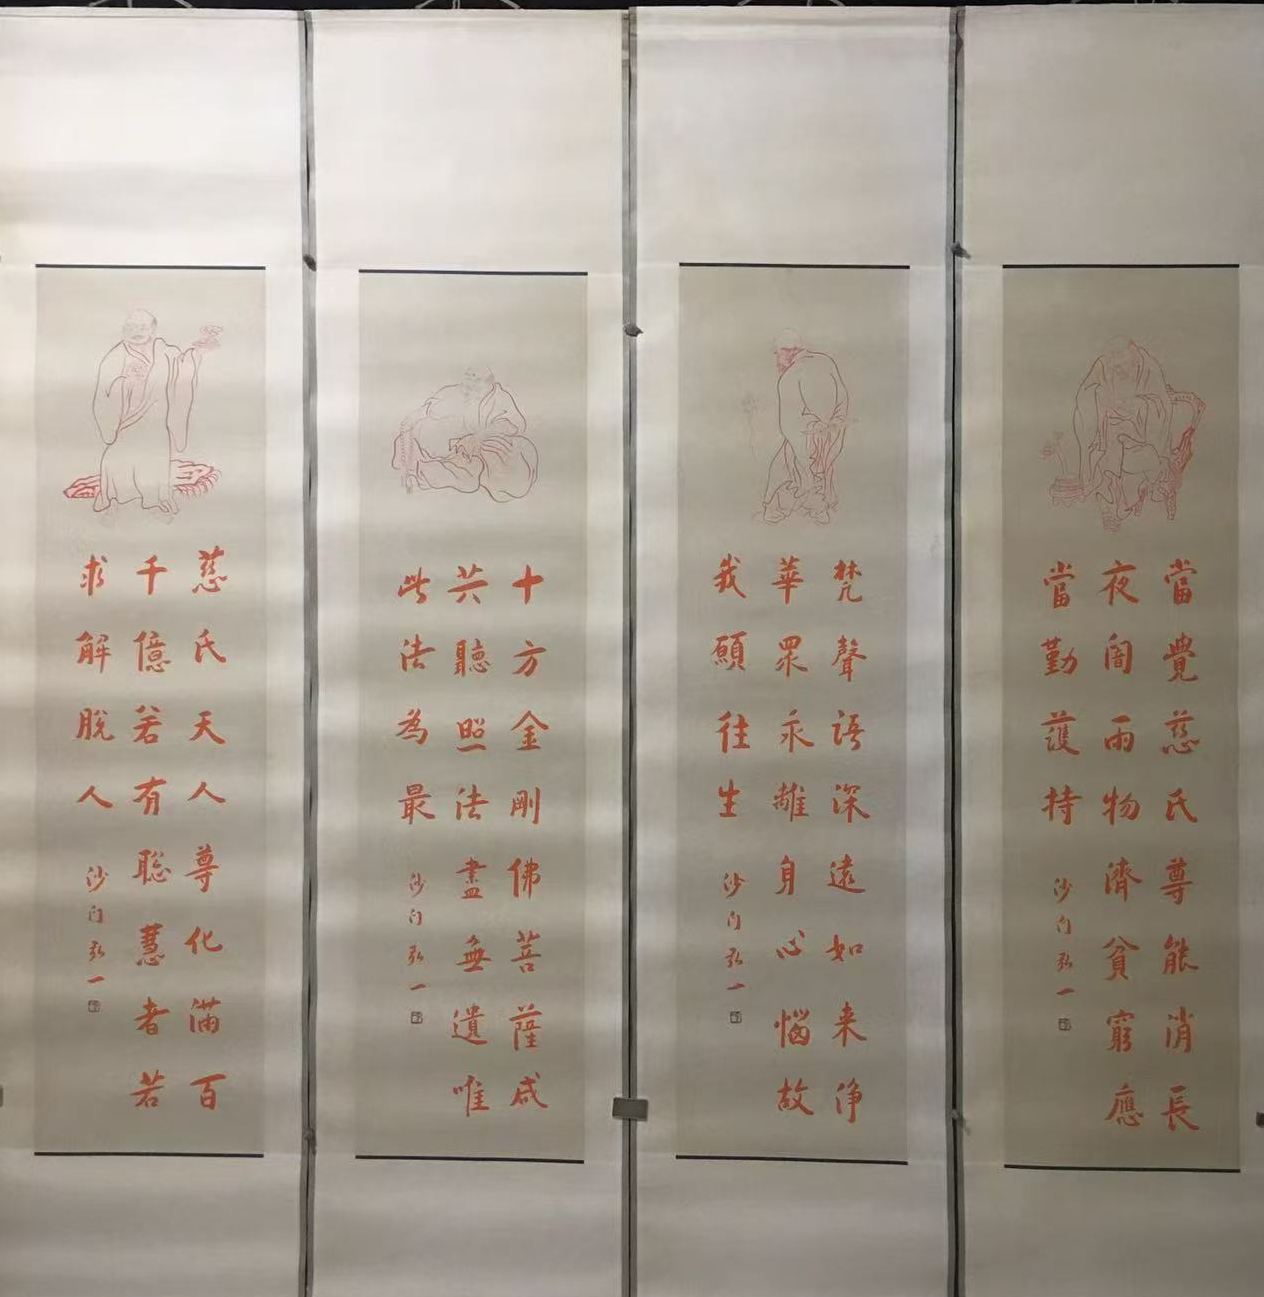 當覺慈氏尊能消長
夜闇雨物濟貧窮應
當勤護持
沙门弘一
梵聲語深遠如来淨
華眾永離身心惱故
我願往生
沙门弘一
十方金剛佛菩薩咸
共聽照法盡無遺唯
此法為最
沙门弘一
慈氏天人尊化滿百
千億若有聡慧者若
求解脫人
沙门弘一